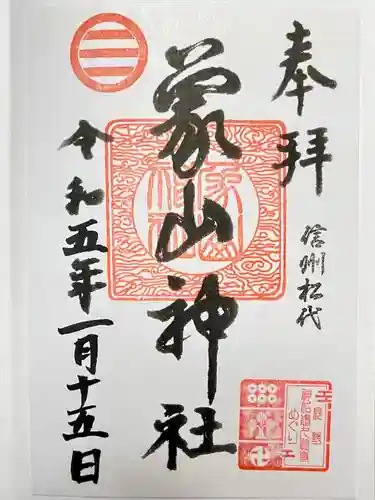 奉拝
信州松代
象山神社
令和五年一月十五日
めぐり